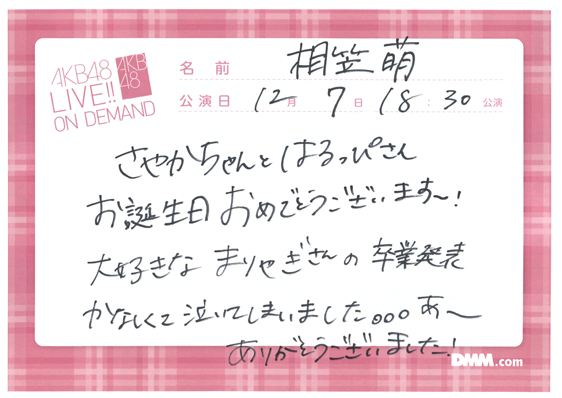 AKB48
LIVE!!
ON DEMAND
AKB
48
名前 相笠萌
公演日 12月 7日 18:30公演
さやかちゃんとはるっぴさん
お誕生日おめでとうございます〜!
大好きなまりやぎさんの卒業発表
かなしくて泣いてしまいました。。。あ〜
ありがとうございました!
DMM.com